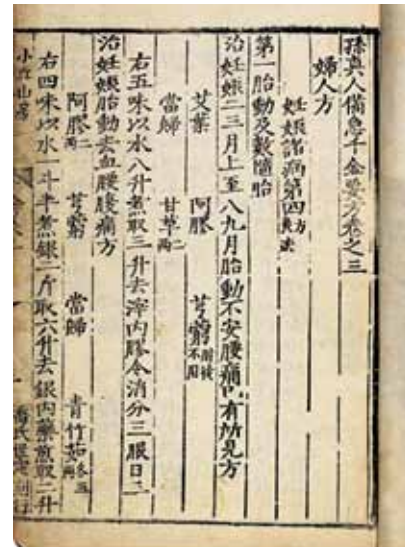 孫真人備急千金要方卷之三
婦人方
妊娠諸病第四
第一胎動及數墮胎
治妊娠二三月上至八九月胎動不安腰痛已有所見方
艾葉 阿膠 芎藭
當歸 甘草
右五味以水八升煮取三升去滓内膠令消分三服日三
治妊娠胎動去血腰腹痛方
阿膠二兩 芎藭 當歸 青竹茹
右四味以水一斗半煮銀一斤取六升去銀内藥煎取二升
小丘山房
喬氏世定刻行